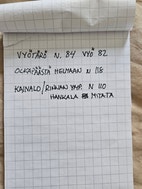 VYÖTÄRÖ N. 84 VYÖ 82
OLKAPÄÄSTÄ HELMAAN N 118
KAINALO/RINNAN YMP. N 110
HANKALA MITATA